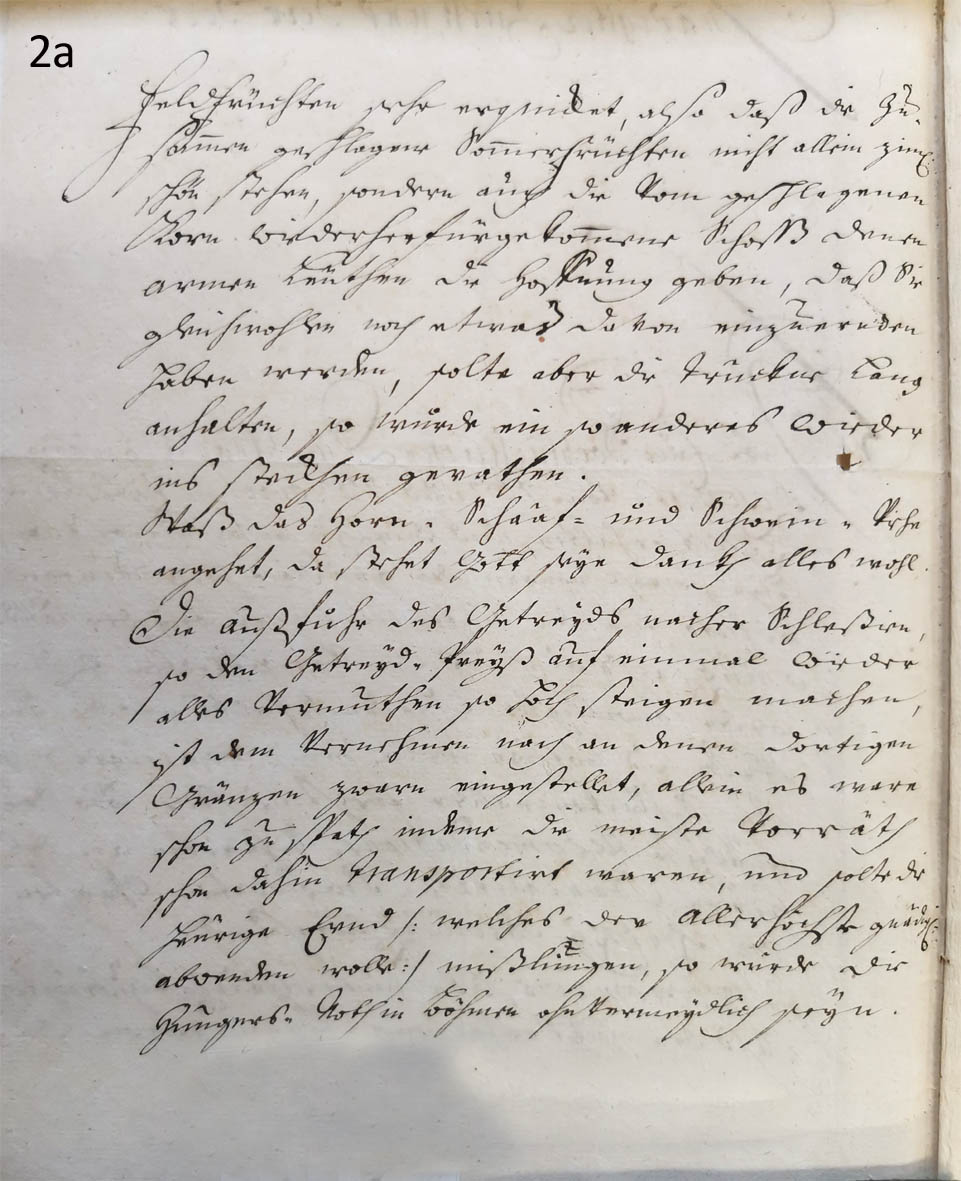 2a
Feldfrüchten sehr erquicket, also daß die Zu-
sam̅en geschlagene Som̅erfrüchten nicht allein ziml:
schön stehen, sondern auch die Vom geschlagenen
Korn widerherfürgekom̅ene Schoss denen
armen Leuthen die Hoffnung geben, daß Sie
gleichwohlen noch etwas davon einzuernden
haben werden, solte aber die truckne Lang
anhalten, so wurde ein so anderes wieder
ins steckhen gerathen.
Waß das Horn- Schaaf- und Schwein- Viehe
angehet, da stehet Gott seye danckh alles wohl.
Die Außfuhr des Getreyds nacher Schlesien,
so den Getreyd- Preyß auf einmal wieder
alles Vermuthen so hoch steigen machen,
ist dem Vernehmen nach an denen dortigen
Gränzen zwarn eingestellet, allein es ware
schon zu spath indeme die meiste Vorräth
schon dahin transportirt waren, und solte die
heurige Ernd /: welches der Allerhöchste gnädigl:
abwenden wolle :/ mißlingen, so wurde die
Hungers- Noth in Böhmen ohnVermeydlich seyn.